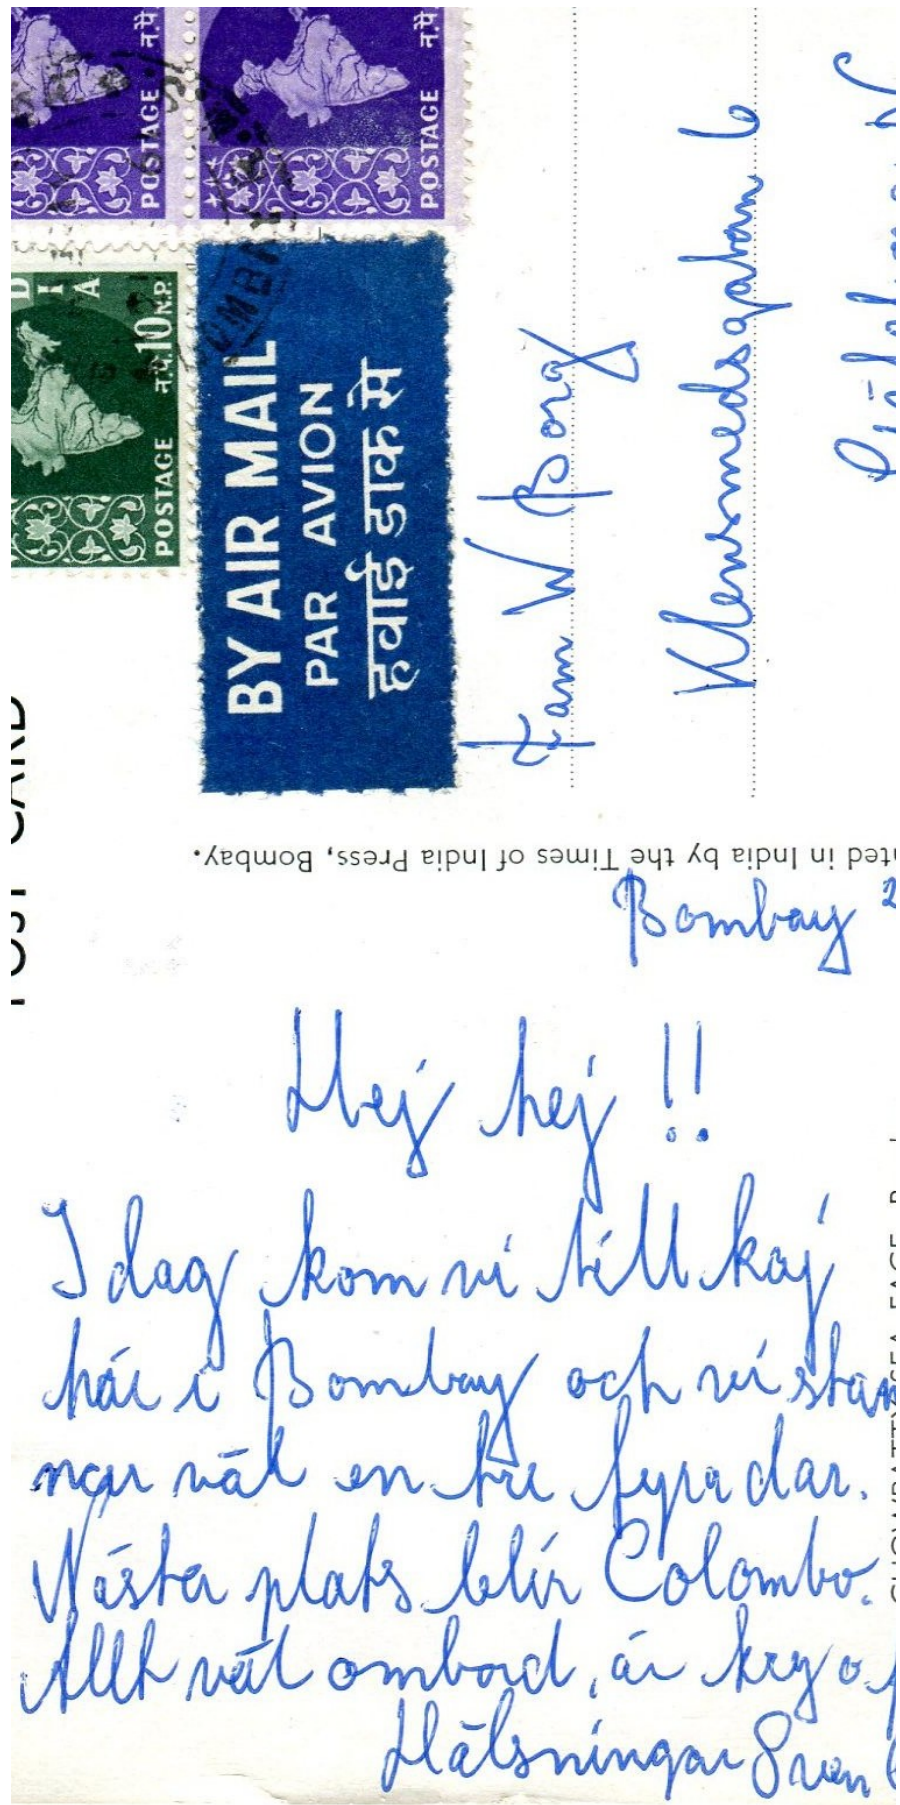 POSTAGE न.पै
POSTAGE न.पै
D I A
POSTAGE न.पै.10 N.P.
BY AIR MAIL
PAR AVION
हवाई डाक से
POST CARD
Fam W Borg
Klensmedsgatan 6
nted in India by the Times of India Press, Bombay.
Bombay 2
Hej hej !!
Idag kom vi till kaj
här i Bombay och vi stan
nar väl en tre fyra dar.
Nästa plats blir Colombo.
Allt väl ombord, är kry o.
Hälsningar Sven